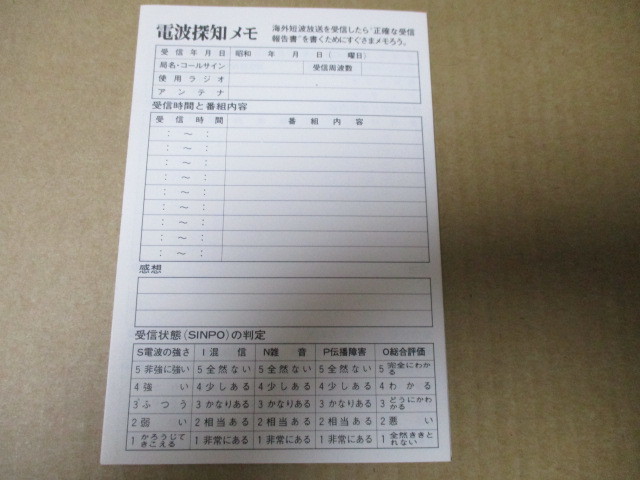 電波探知メモ
海外短波放送を受信したら“正確な受信
報告書”を書くためにすぐさまメモろう。
受信年月日 昭和 年 月 日( 曜日)
局名・コールサイン 受信周波数
使用ラジオ
アンテナ
受信時間と番組内容
受信時間 番組内容
: ～ :
: ～ :
: ～ :
: ～ :
: ～ :
: ～ :
: ～ :
: ～ :
: ～ :
感想
受信状態(SINPO)の判定
S電波の強さ I混信 N雑音 P伝播障害 O総合評価
5 非強に強い 5 全然ない 5 全然ない 5 全然ない 5 完全にわかる
4 強い 4 少しある 4 少しある 4 少しある 4 わかる
3 ふつう 3 かなりある 3 かなりある 3 かなりある 3 どうにかわかる
2 弱い 2 相当ある 2 相当ある 2 相当ある 2 悪い
1 かろうじてきこえる 1 非常にある 1 非常にある 1 非常にある 1 全然ききとれない